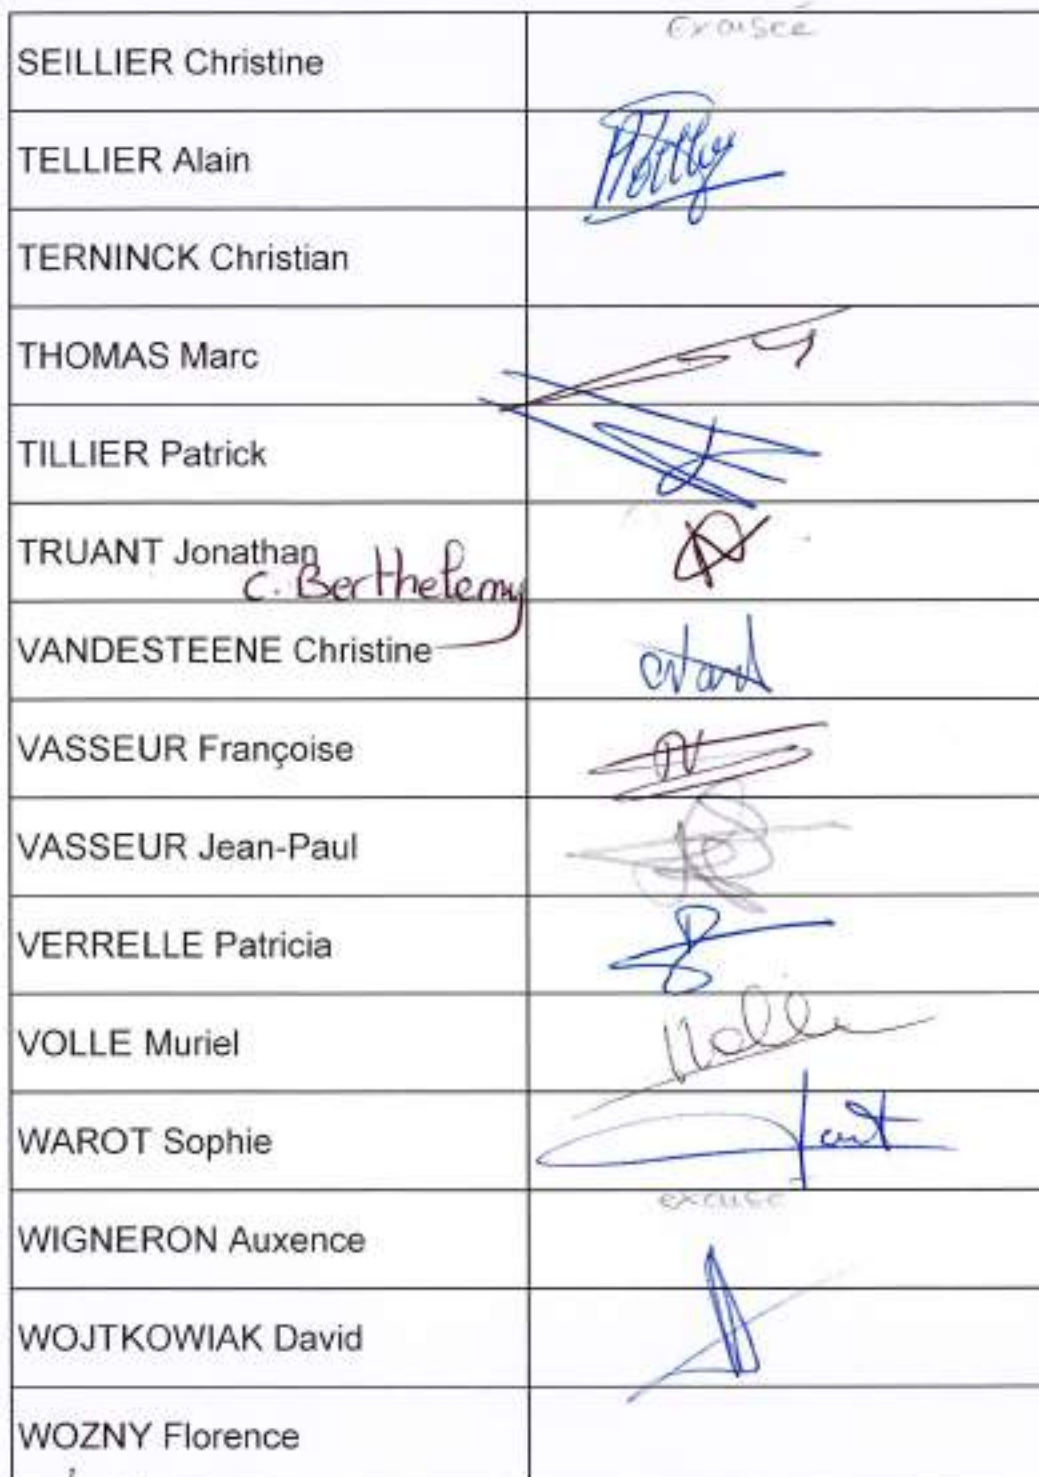 excusée
SEILLIER Christine
TELLIER Alain
TERNINCK Christian
THOMAS Marc
TILLIER Patrick
TRUANT Jonathan
C. Berthelemy
VANDESTEENE Christine
VASSEUR Françoise
VASSEUR Jean-Paul
VERRELLE Patricia
VOLLE Muriel
WAROT Sophie
excusé
WIGNERON Auxence
WOJTKOWIAK David
WOZNY Florence